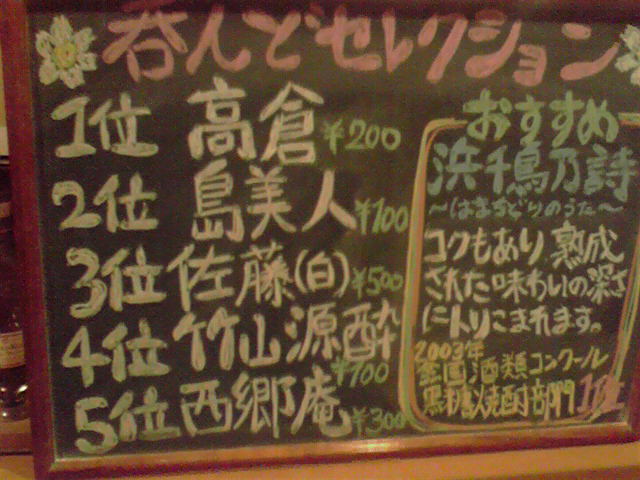 呑んどセレクション
1位 高倉 ¥200
2位 島美人 ¥100
3位 佐藤(白) ¥500
4位 竹山源酔 ¥700
5位 西郷庵 ¥300
おすすめ
浜千鳥乃詩
～はまちどりのうた～
コクもあり熟成
された味わいの深さ
にトリこまれます。
2003年
全国酒類コンクール
黒糖焼酎部門1位